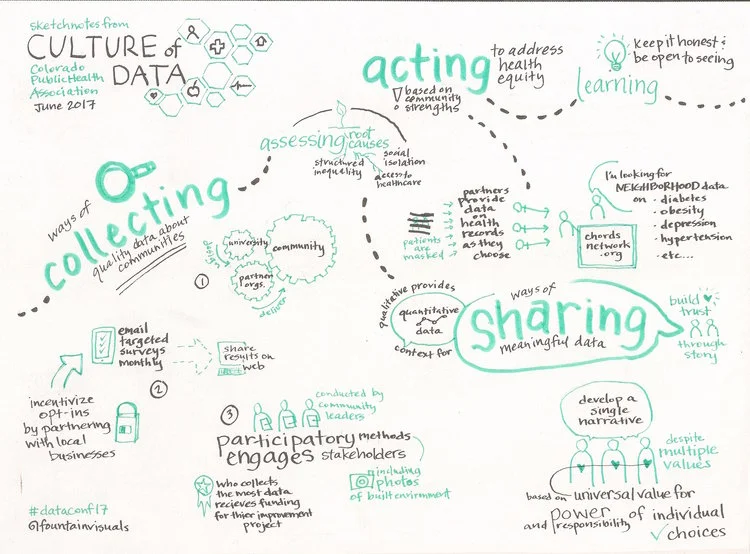 sketchnotes from
CULTURE of
DATA
Colorado
Public Health
Association
June 2017
acting
to address
health
equity
based on
community
strengths
learning
Keep it honest &
be open to seeing
assessing root
causes
structured
inequality
social
isolation
access to
healthcare
ways of
collecting
quality data about
communities
1
design
university
community
partner
orgs.
deliver
partners
provide
data
on
health
records
as they
choose
patients
are
masked
I'm looking for
NEIGHBORHOOD data
on · diabetes
· obesity
· depression
· hypertension
· etc...
chords
network
.org
qualitative provides
quantitative
data
context for
ways of
sharing
meaningful data
build
trust
through
story
email
targeted
surveys
monthly
share
results on
web
2
incentivize
opt-ins
by partnering
with local
businesses
3
conducted by
community
leaders
participatory methods
engages stakeholders
who collects
the most data
recieves funding
for thier improvement
project
including
photos
of built envirnment
develop a
single
narrative
despite
multiple
values
based on universal value for
power of individual
and responsibility
choices
#dataconf17
@fountainvisuals